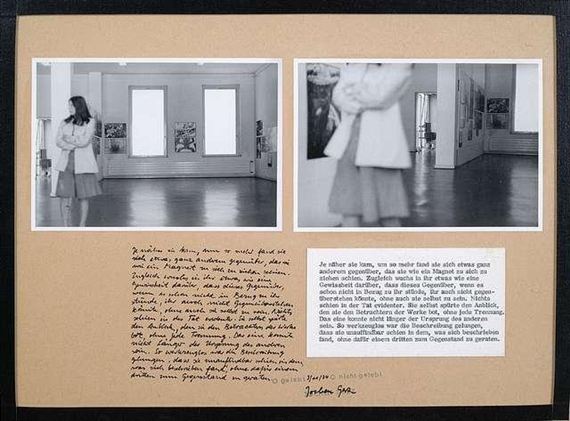 Je näher sie kam, um so mehr fand sie
sich etwas ganz anderem gegenüber, das sie
wie ein Magnet zu sich zu ziehen schien.
Zugleich wuchs in ihr etwas wie eine
Gewissheit darüber, dass dieses Gegenüber,
wenn es schon nicht in Bezug zu ihr
stünde, ihr auch nicht gegenüberstehen
könnte, ohne auch sie selbst zu sein. Nichts
schien in der Tat evidenter. Sie selbst spürte
den Anblick, den sie den Betrachtern der Werke
bot, ohne jede Trennung. Das eine konnte
nicht länger der Ursprung des anderen
sein. So werkzeuglos war die Beschreibung
gelungen, dass sie unauffindbar schien in dem,
was sich beschrieben fand, ohne dafür einem
dritten zum Gegenstand zu geraten.
O gelebt
O nicht gelebt
Jochen Gerz
Je näher sie kam, um so mehr fand sie sich etwas ganz
anderem gegenüber, das sie wie ein Magnet zu sich zu
ziehen schien. Zugleich wuchs in ihr etwas wie eine
Gewissheit darüber, dass dieses Gegenüber, wenn es
schon nicht in Bezug zu ihr stünde, ihr auch nicht gegen-
überstehen könnte, ohne auch sie selbst zu sein. Nichts
schien in der Tat evidenter. Sie selbst spürte den Anblick,
den sie den Betrachtern der Werke bot, ohne jede Trennung.
Das eine konnte nicht länger der Ursprung des anderen
sein. So werkzeuglos war die Beschreibung gelungen,
dass sie unauffindbar schien in dem, was sich beschrieben
fand, ohne dafür einem dritten zum Gegenstand zu geraten.